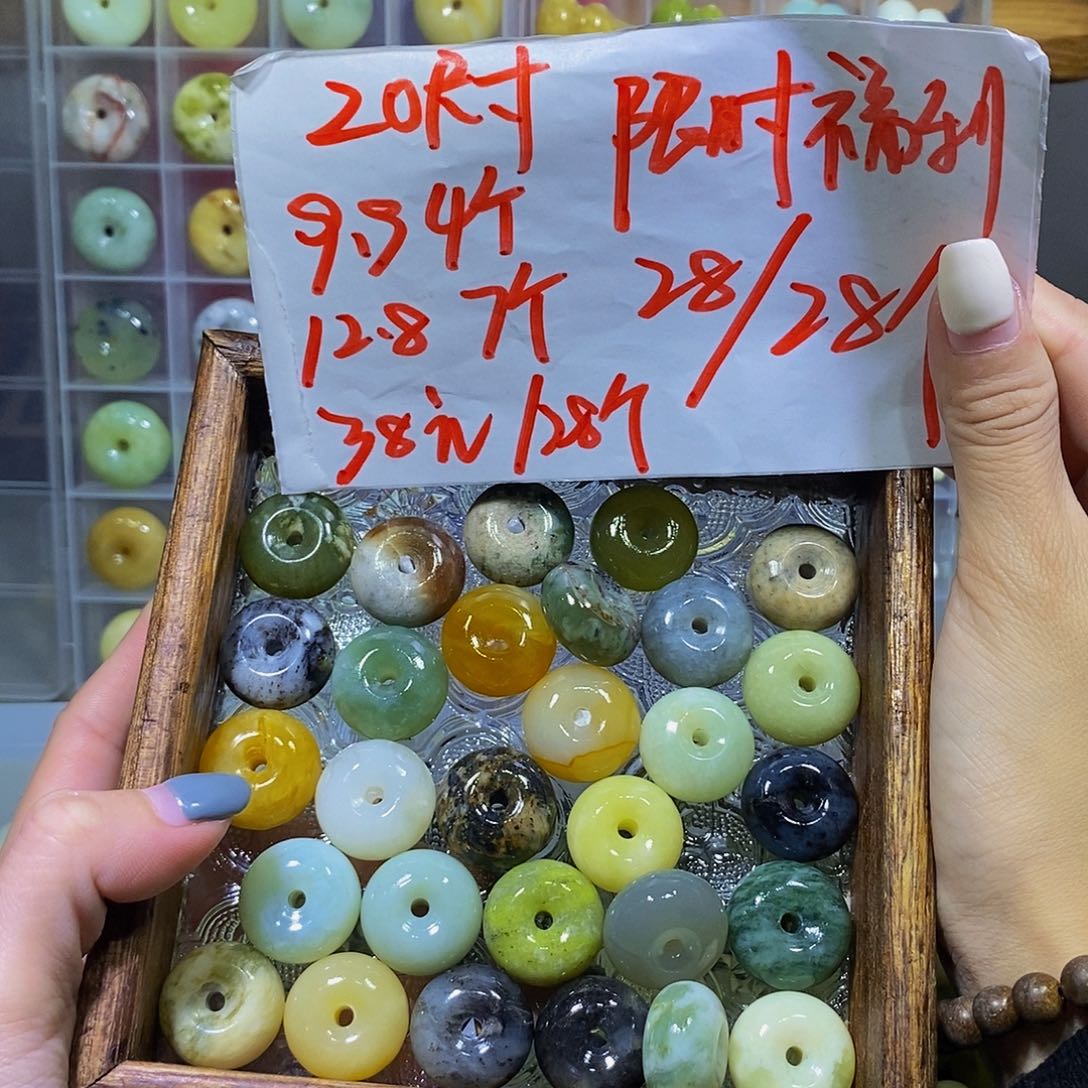 20尺寸 限时福利
9.9 4个
12.8 7个 28/28个
38元/28个